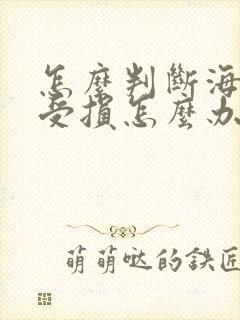 怎麼判斷海
受損怎麼办
萌萌哒的鉄匠